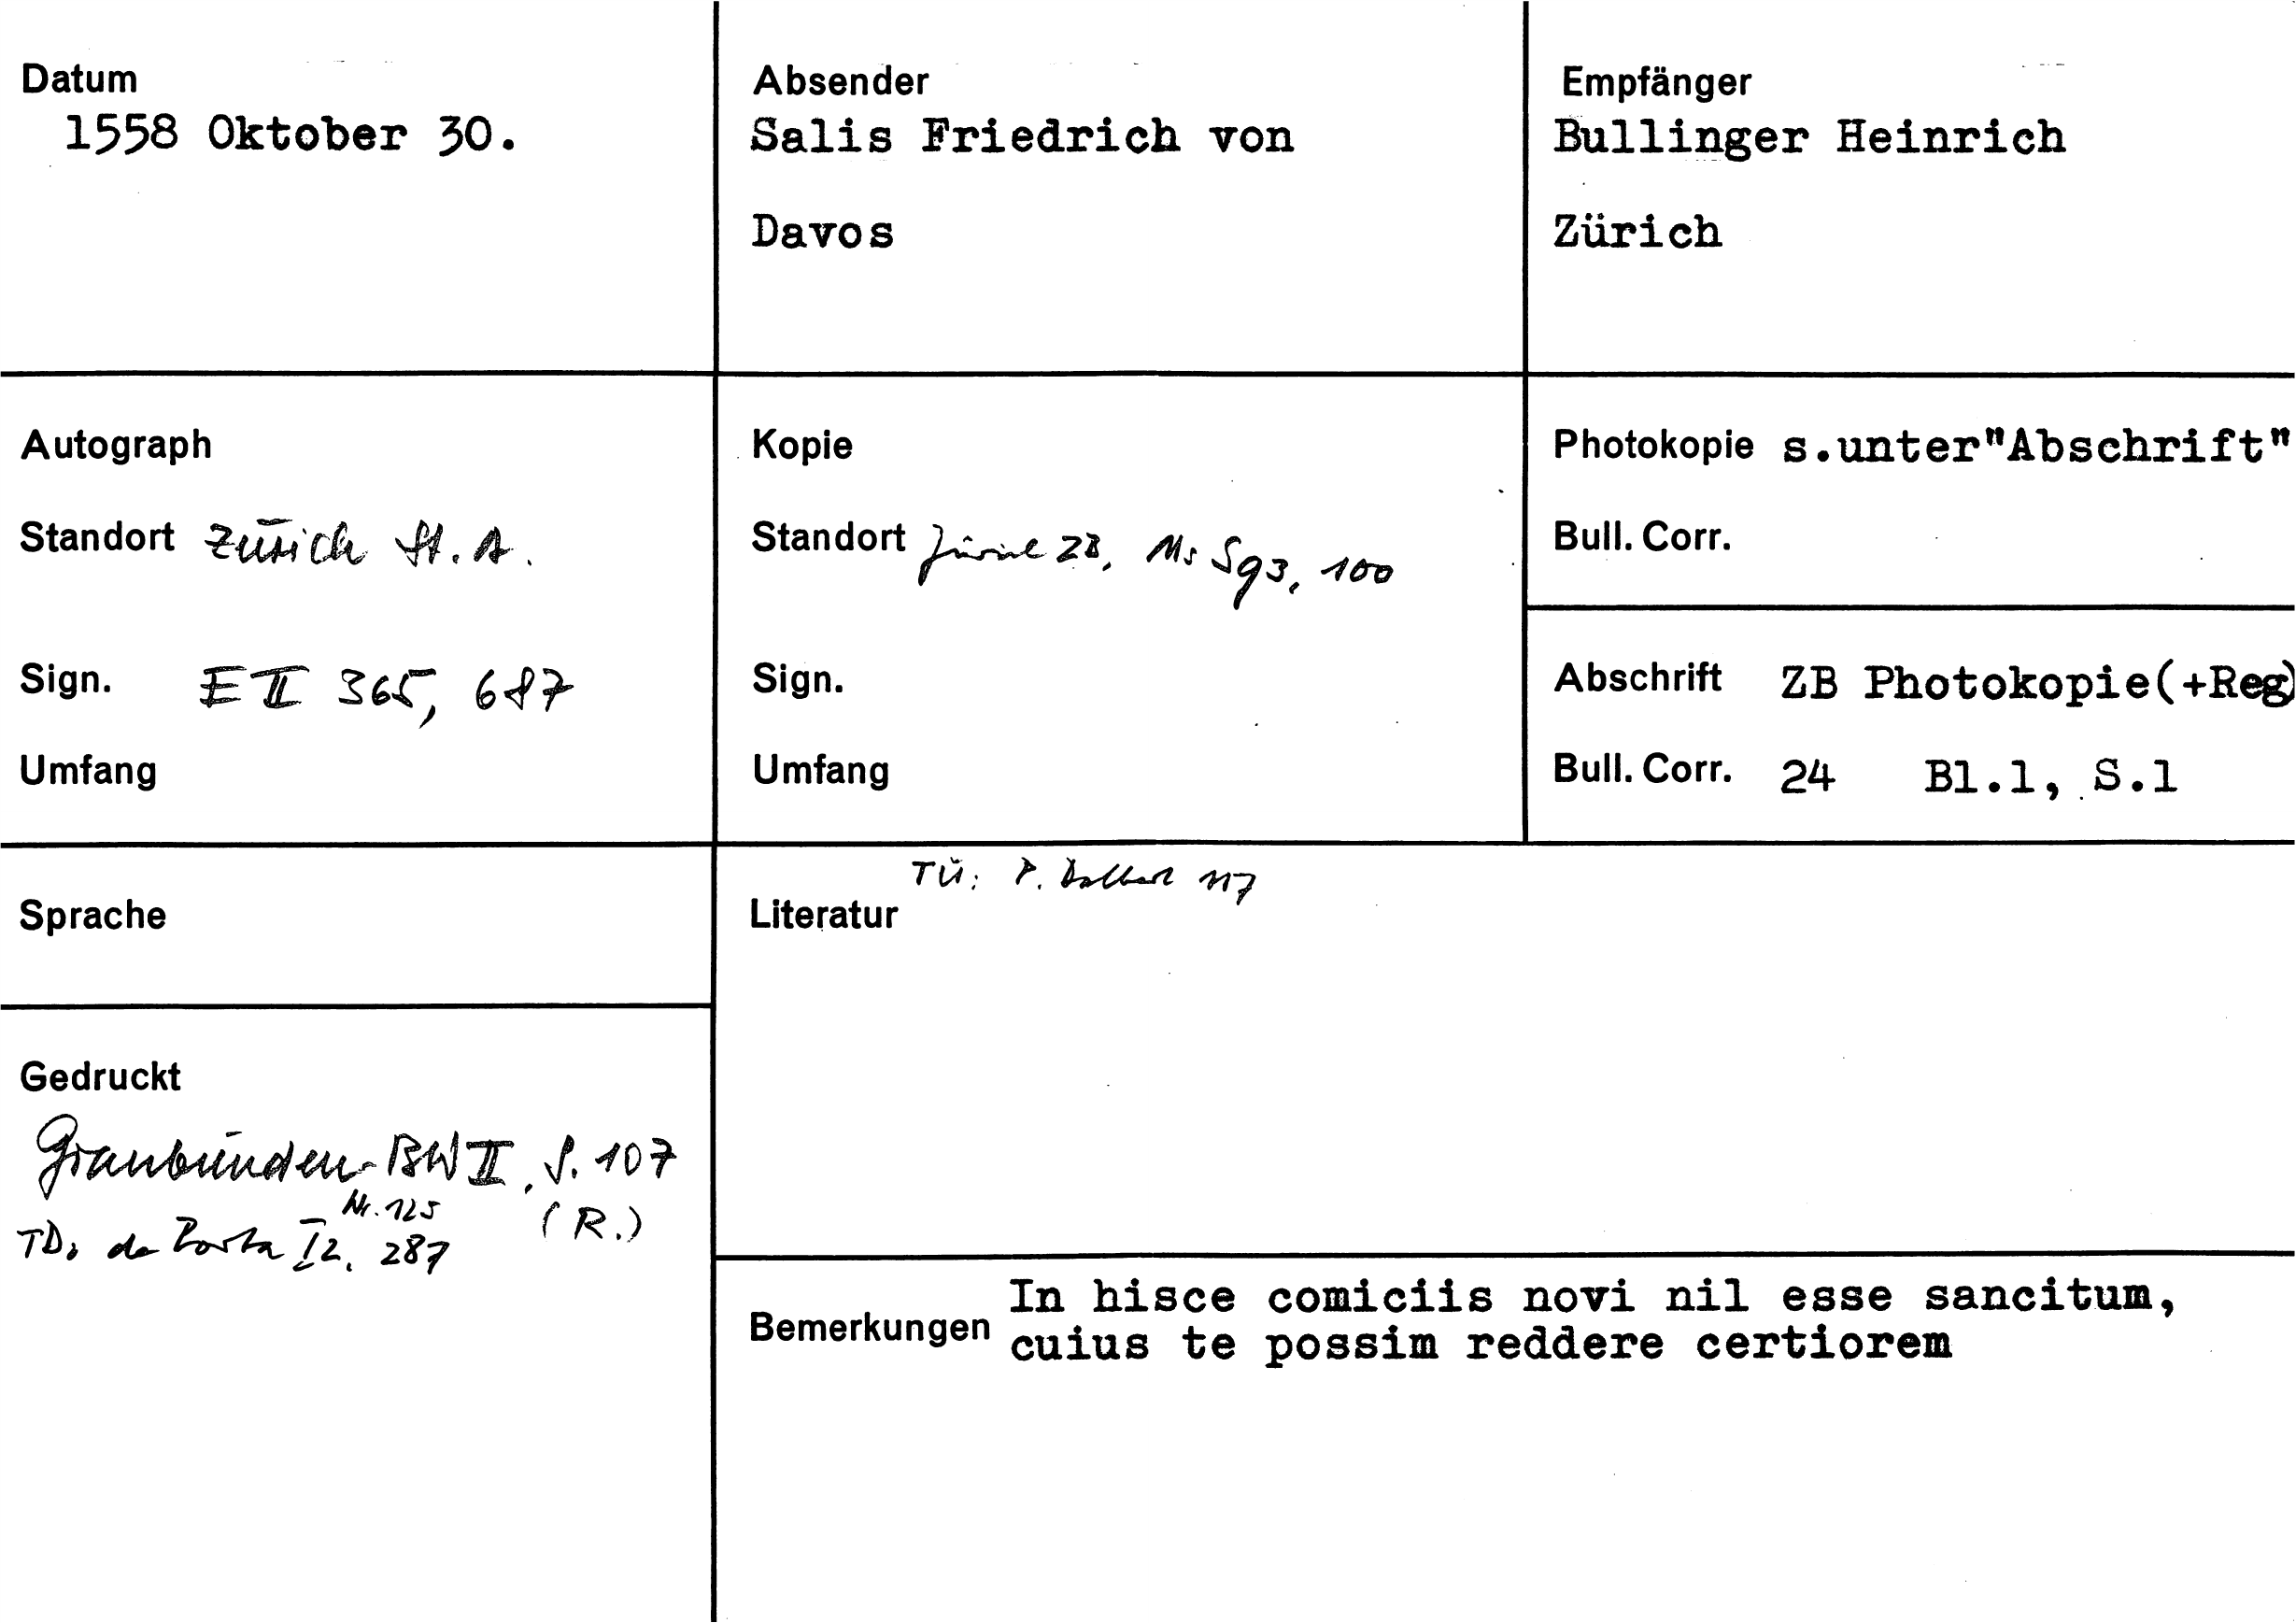 Datum
1558 Oktober 30.
Absender
Salis Friedrich von
Davos
Empfänger
Bullinger Heinrich
Zürich
Autograph
Standort Zürich St. A.
Sign. E II 365, 687
Umfang
Kopie
Standort Zürich ZB, Ms S 93, 100
Sign.
Umfang
Photokopie s.unter"Abschrift"
Bull. Corr.
Abschrift ZB Photokopie(+Reg)
Bull. Corr. 24 Bl.1, S.1
Sprache
Gedruckt
Graubünden-BW II, S. 107
Nr. 125 (R.)
TD: de Porta I 2, 287
TÜ: P. 117
Literatur
Bemerkungen In hisce comiciis novi nil esse sancitum,
cuius te possim reddere certiorem